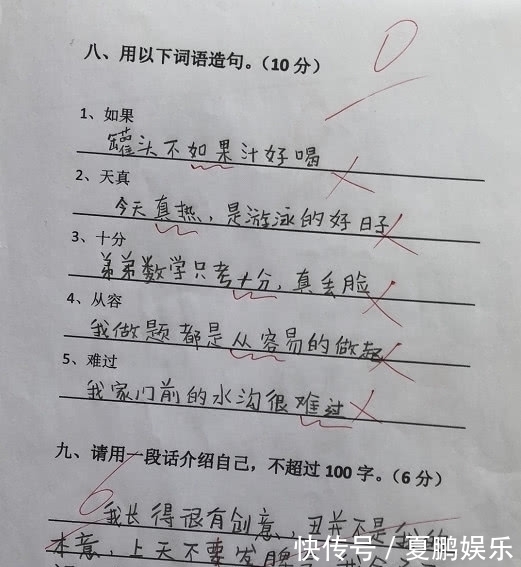 0
八、用以下词语造句。(10分)
1、如果
罐头不如果汁好喝
2、天真
今天真热，是游泳的好日子
3、十分
弟弟数学只考十分，真丢脸
4、从容
我做题都是从容易的做起
5、难过
我家门前的水沟很难过
九、请用一段话介绍自己，不超过100字。(6分)
6
我长得很有创意，丑并不是我的
本意，上天不要发脾
快传号／夏鹏娱乐